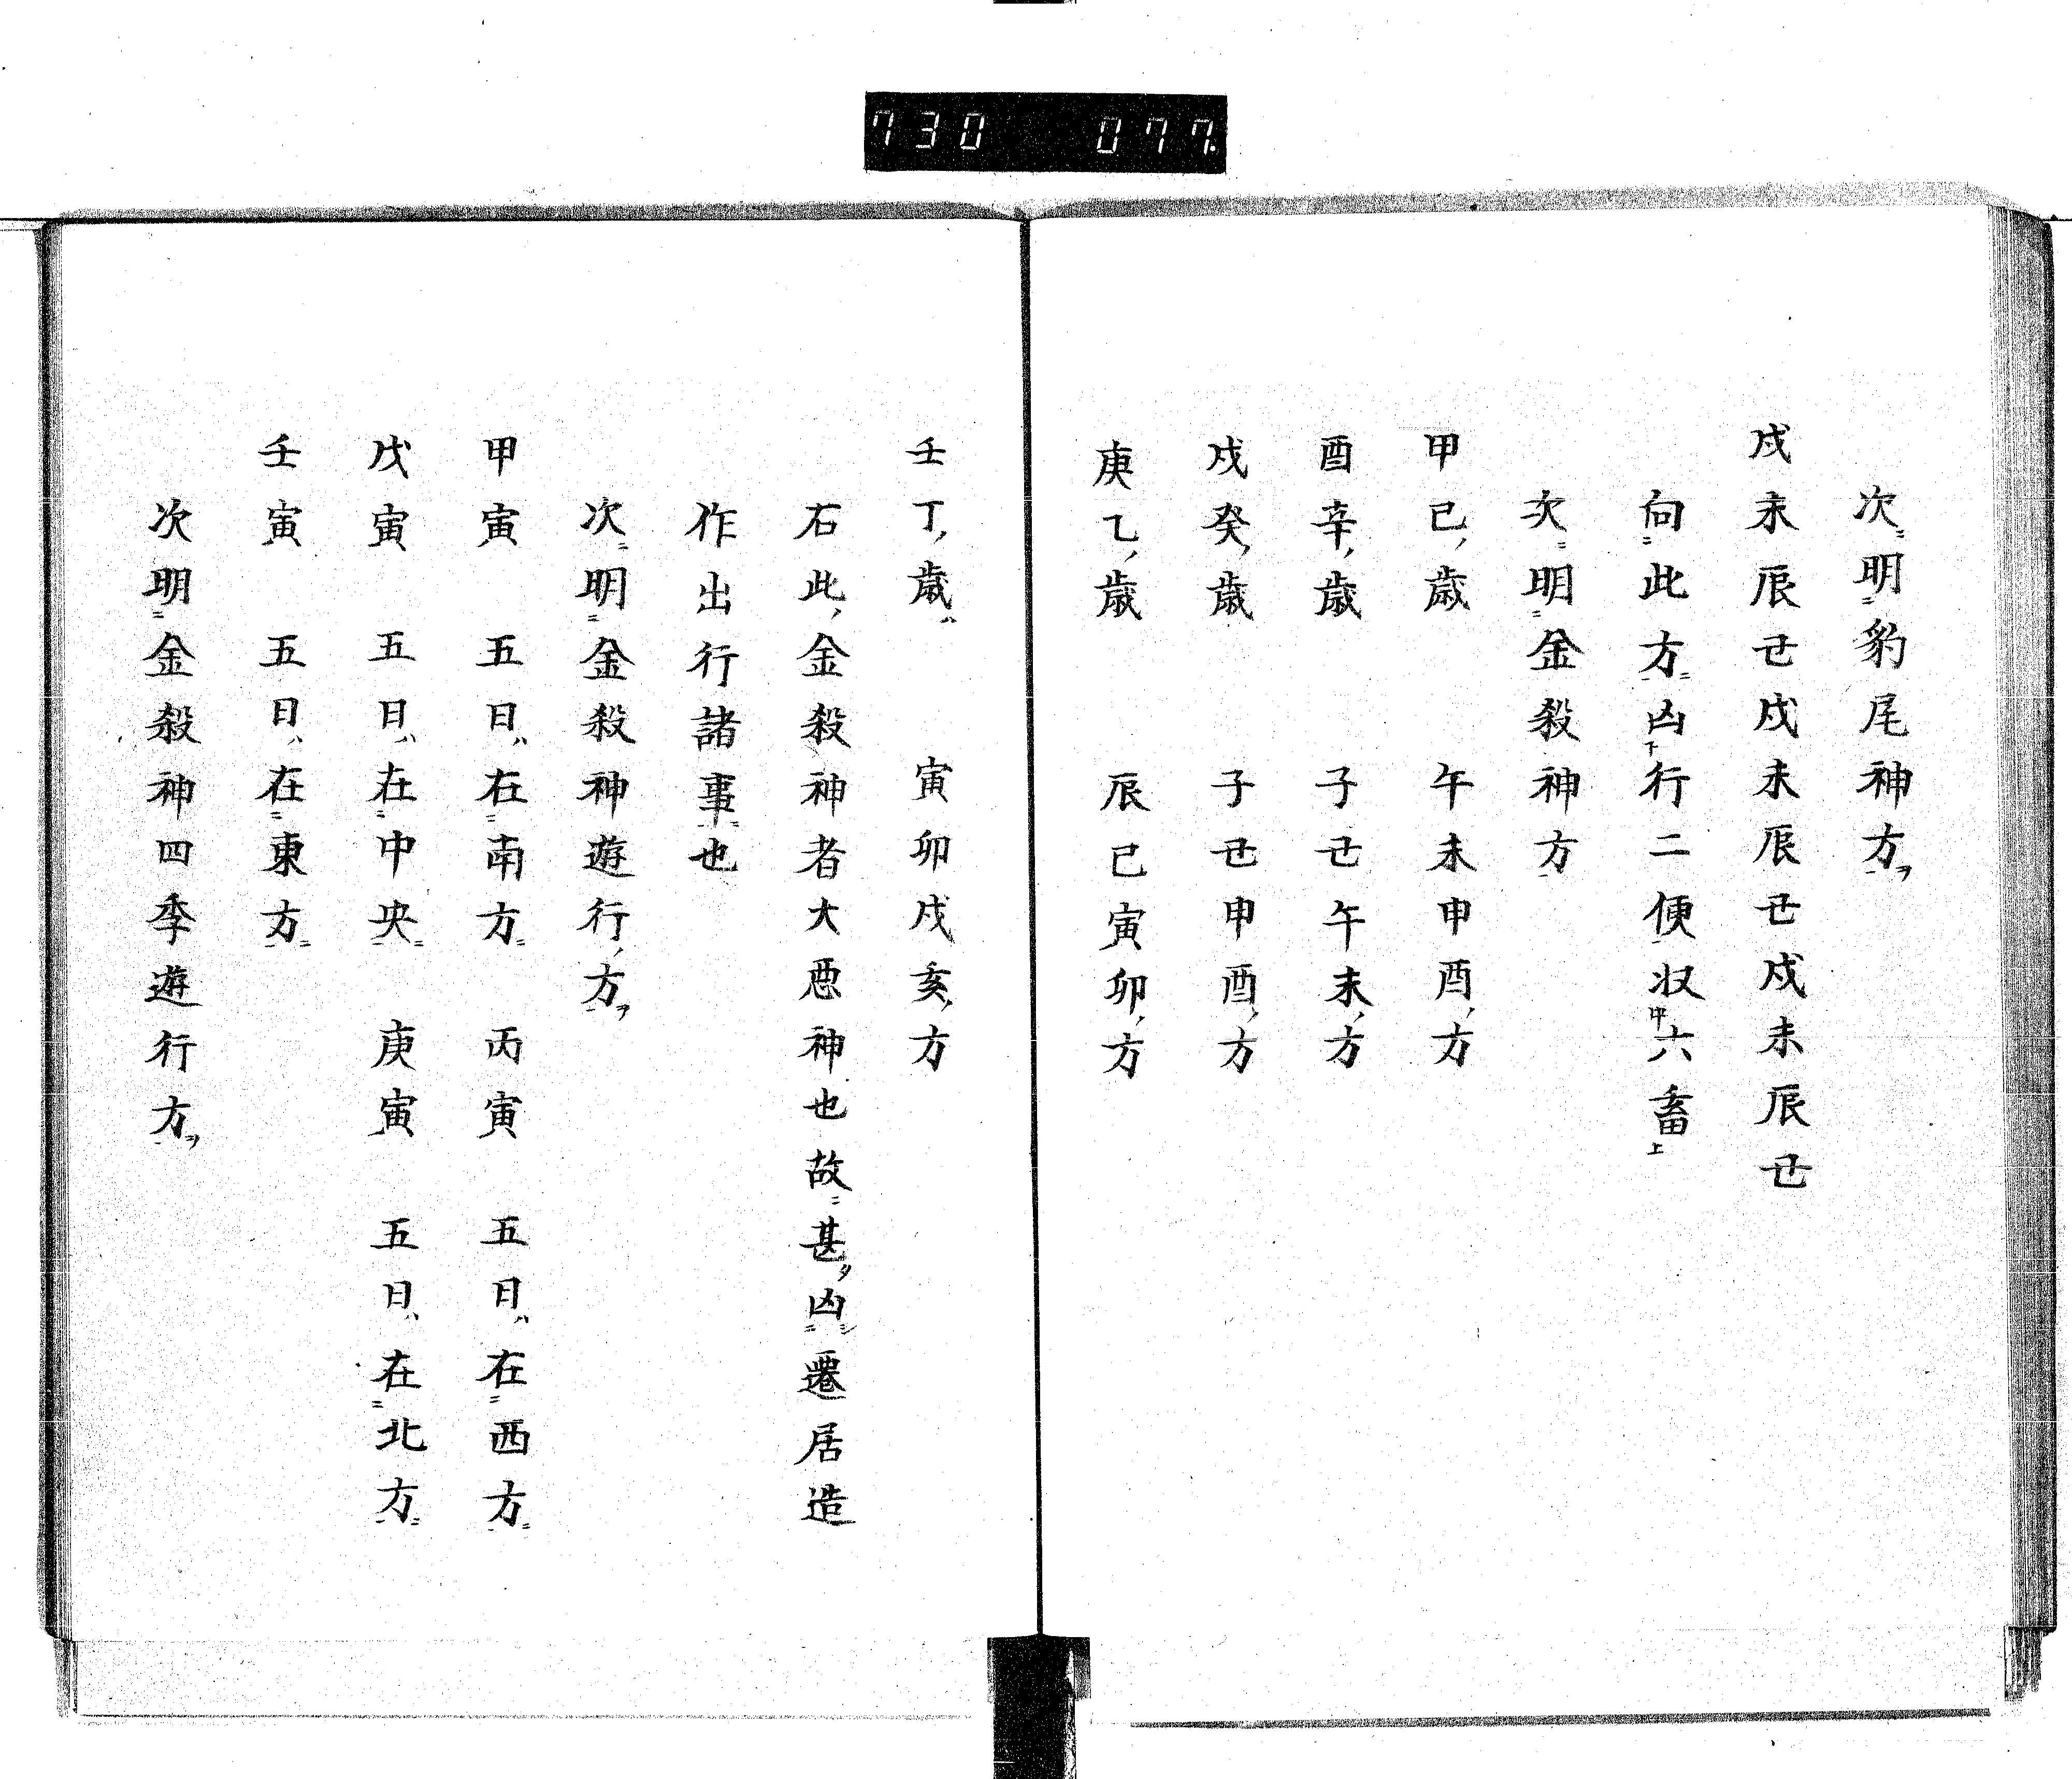 730 077
次明豹尾神方ヲ
戌未辰丑戌未辰丑戌未辰丑
向此方凶下行二便収中六畜上
次明金殺神方
甲己ノ歳 午未申酉ノ方
酉辛ノ歳 子丑午未ノ方
戌癸ノ歳 子丑申酉ノ方
庚乙ノ歳 辰巳寅卯ノ方
壬丁ノ歳ハ 寅卯戌亥ノ方
右此ノ金殺神者大悪神也故甚タ凶遷居造
作出行諸事也
次明金殺神遊行ノ方ヲ
甲寅 五日ハ在南方 丙寅 五日ハ在西方
戊寅 五日ハ在中央 庚寅 五日ハ在北方
壬寅 五日ハ在東方
次明金殺神四季遊行方ヲ